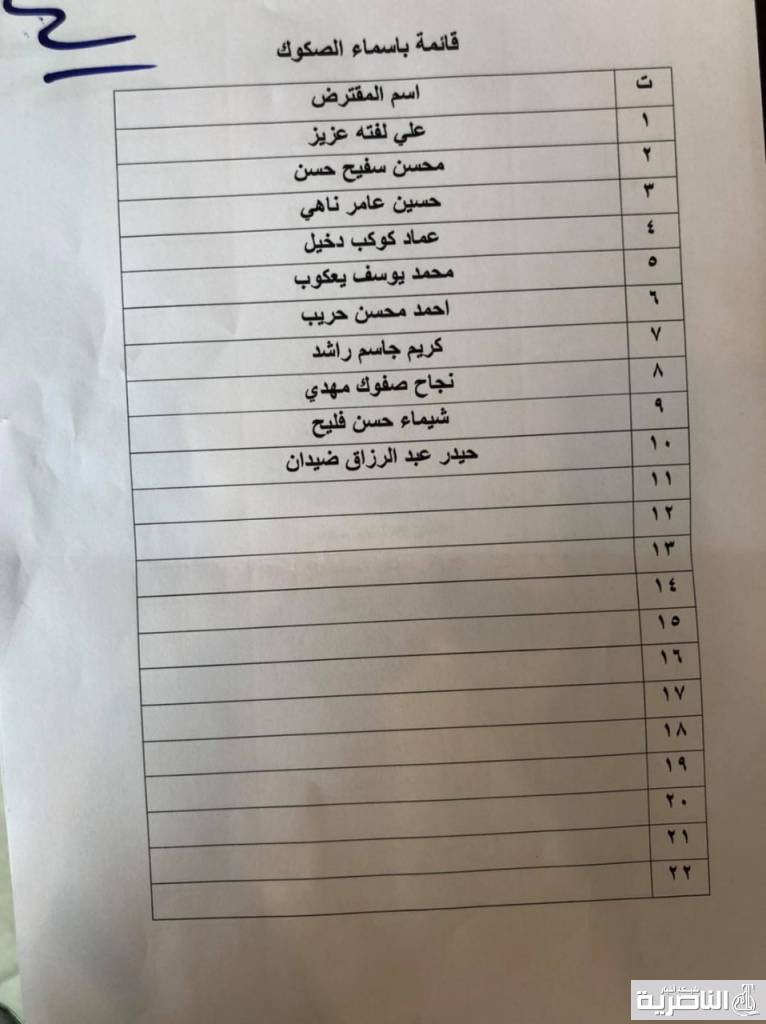 قائمة باسماء الصكوك
ت اسم المقترض
١ علي لفته عزيز
٢ محسن سفيح حسن
٣ حسين عامر ناهي
٤ عماد كوكب دخيل
٥ محمد يوسف يعكوب
٦ احمد محسن حريب
٧ كريم جاسم راشد
٨ نجاح صفوك مهدي
٩ شيماء حسن فليح
١٠ حيدر عبد الرزاق ضيدان
١١
١٢
١٣
١٤
١٥
١٦
١٧
١٨
١٩
٢٠
٢١
٢٢
شبكة اخبار
الناصرية